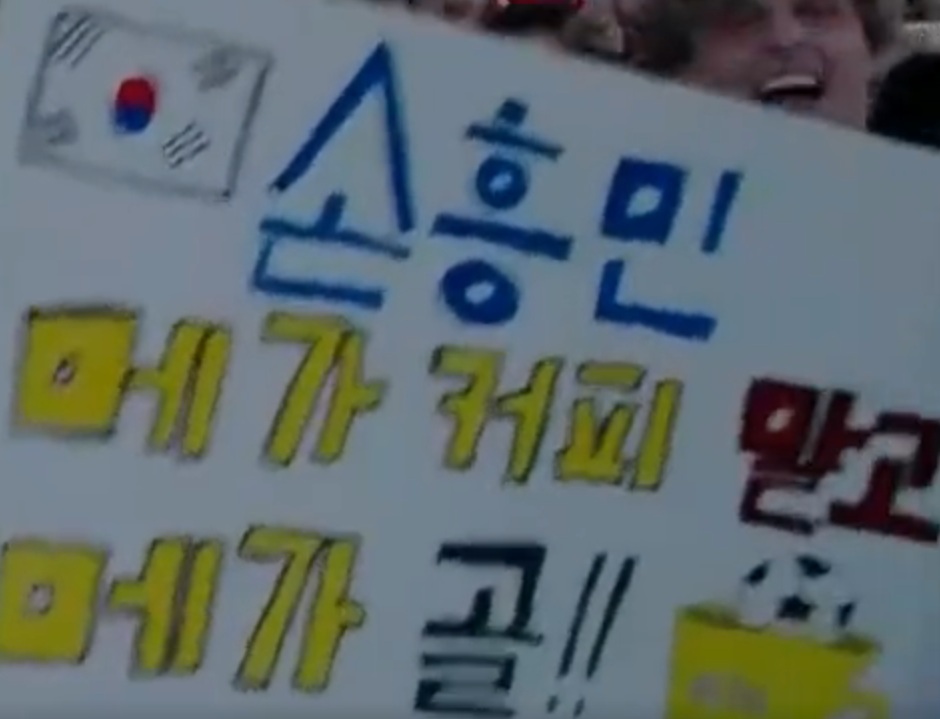 손흥민
메가 커피 말고
메가 골!!